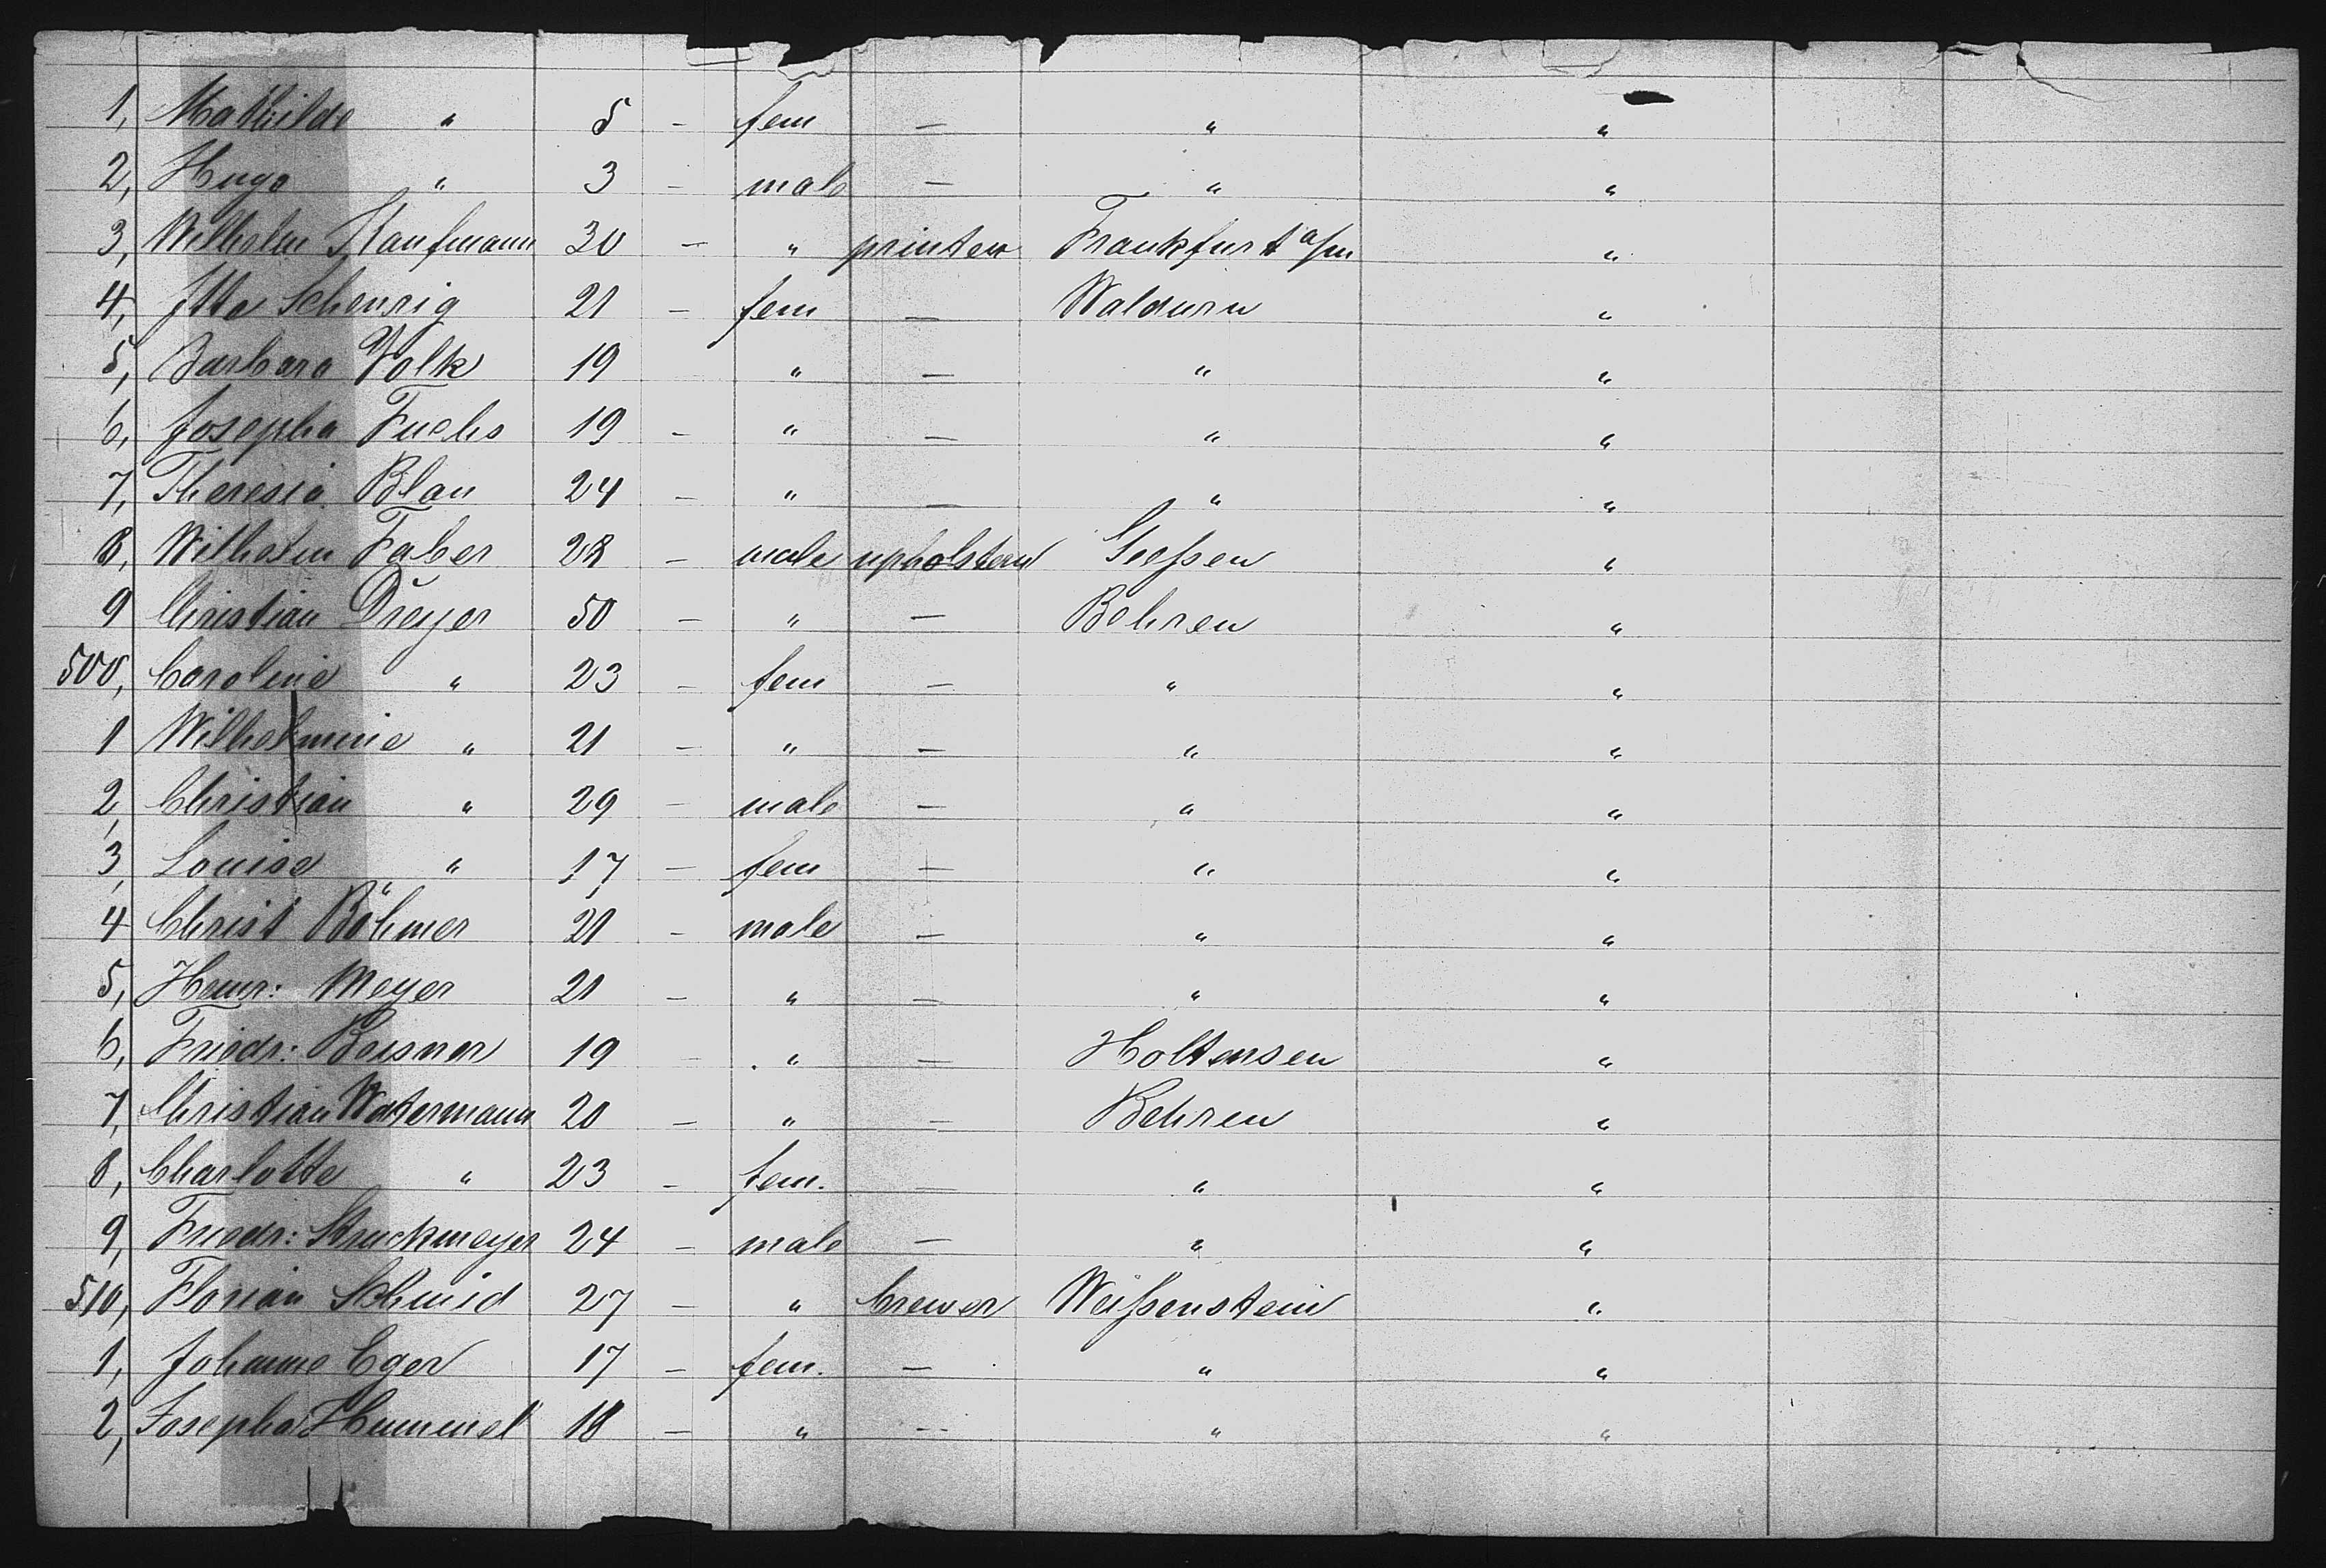 1, Mathilde " 5 - fem — " "
2, Hugo " 3 - male — " "
3, Wilhelm Kaufmann 30 - " printer Frankfurt a/m "
4, Itta Scheurig 21 - fem — Waldurn "
5, Barbara Volk 19 " — " "
6, Josepha Fuchs 19 - " — " "
7, Theresia Blau 24 - " — " "
8, Wilhelm Faber 28 - male upholsterer Gießen "
9 Christian Dreyer 50 - " — Behren "
500, Caroline " 23 - fem — " "
1 Wilhelmine " 21 - " — " "
2, Christian " 29 - male — " "
3, Louise " 17 - fem — " "
4 Christ Böhmer 21 - male — " "
5, Heinr: Meyer 21 - " — " "
6, Friedr: Beisner 19 - " — Holtensen "
7, Christian Watermann 20 - " — Behren "
8, Charlotte " 23 - fem. — " "
9, Friedr: Struckmeyer 24 - male — " "
510, Florian Schmid 27 - " brewer Weißenstein "
1, Johanne Eger 17 - fem. — " "
2, Josepha Hummel 18 - " — " "